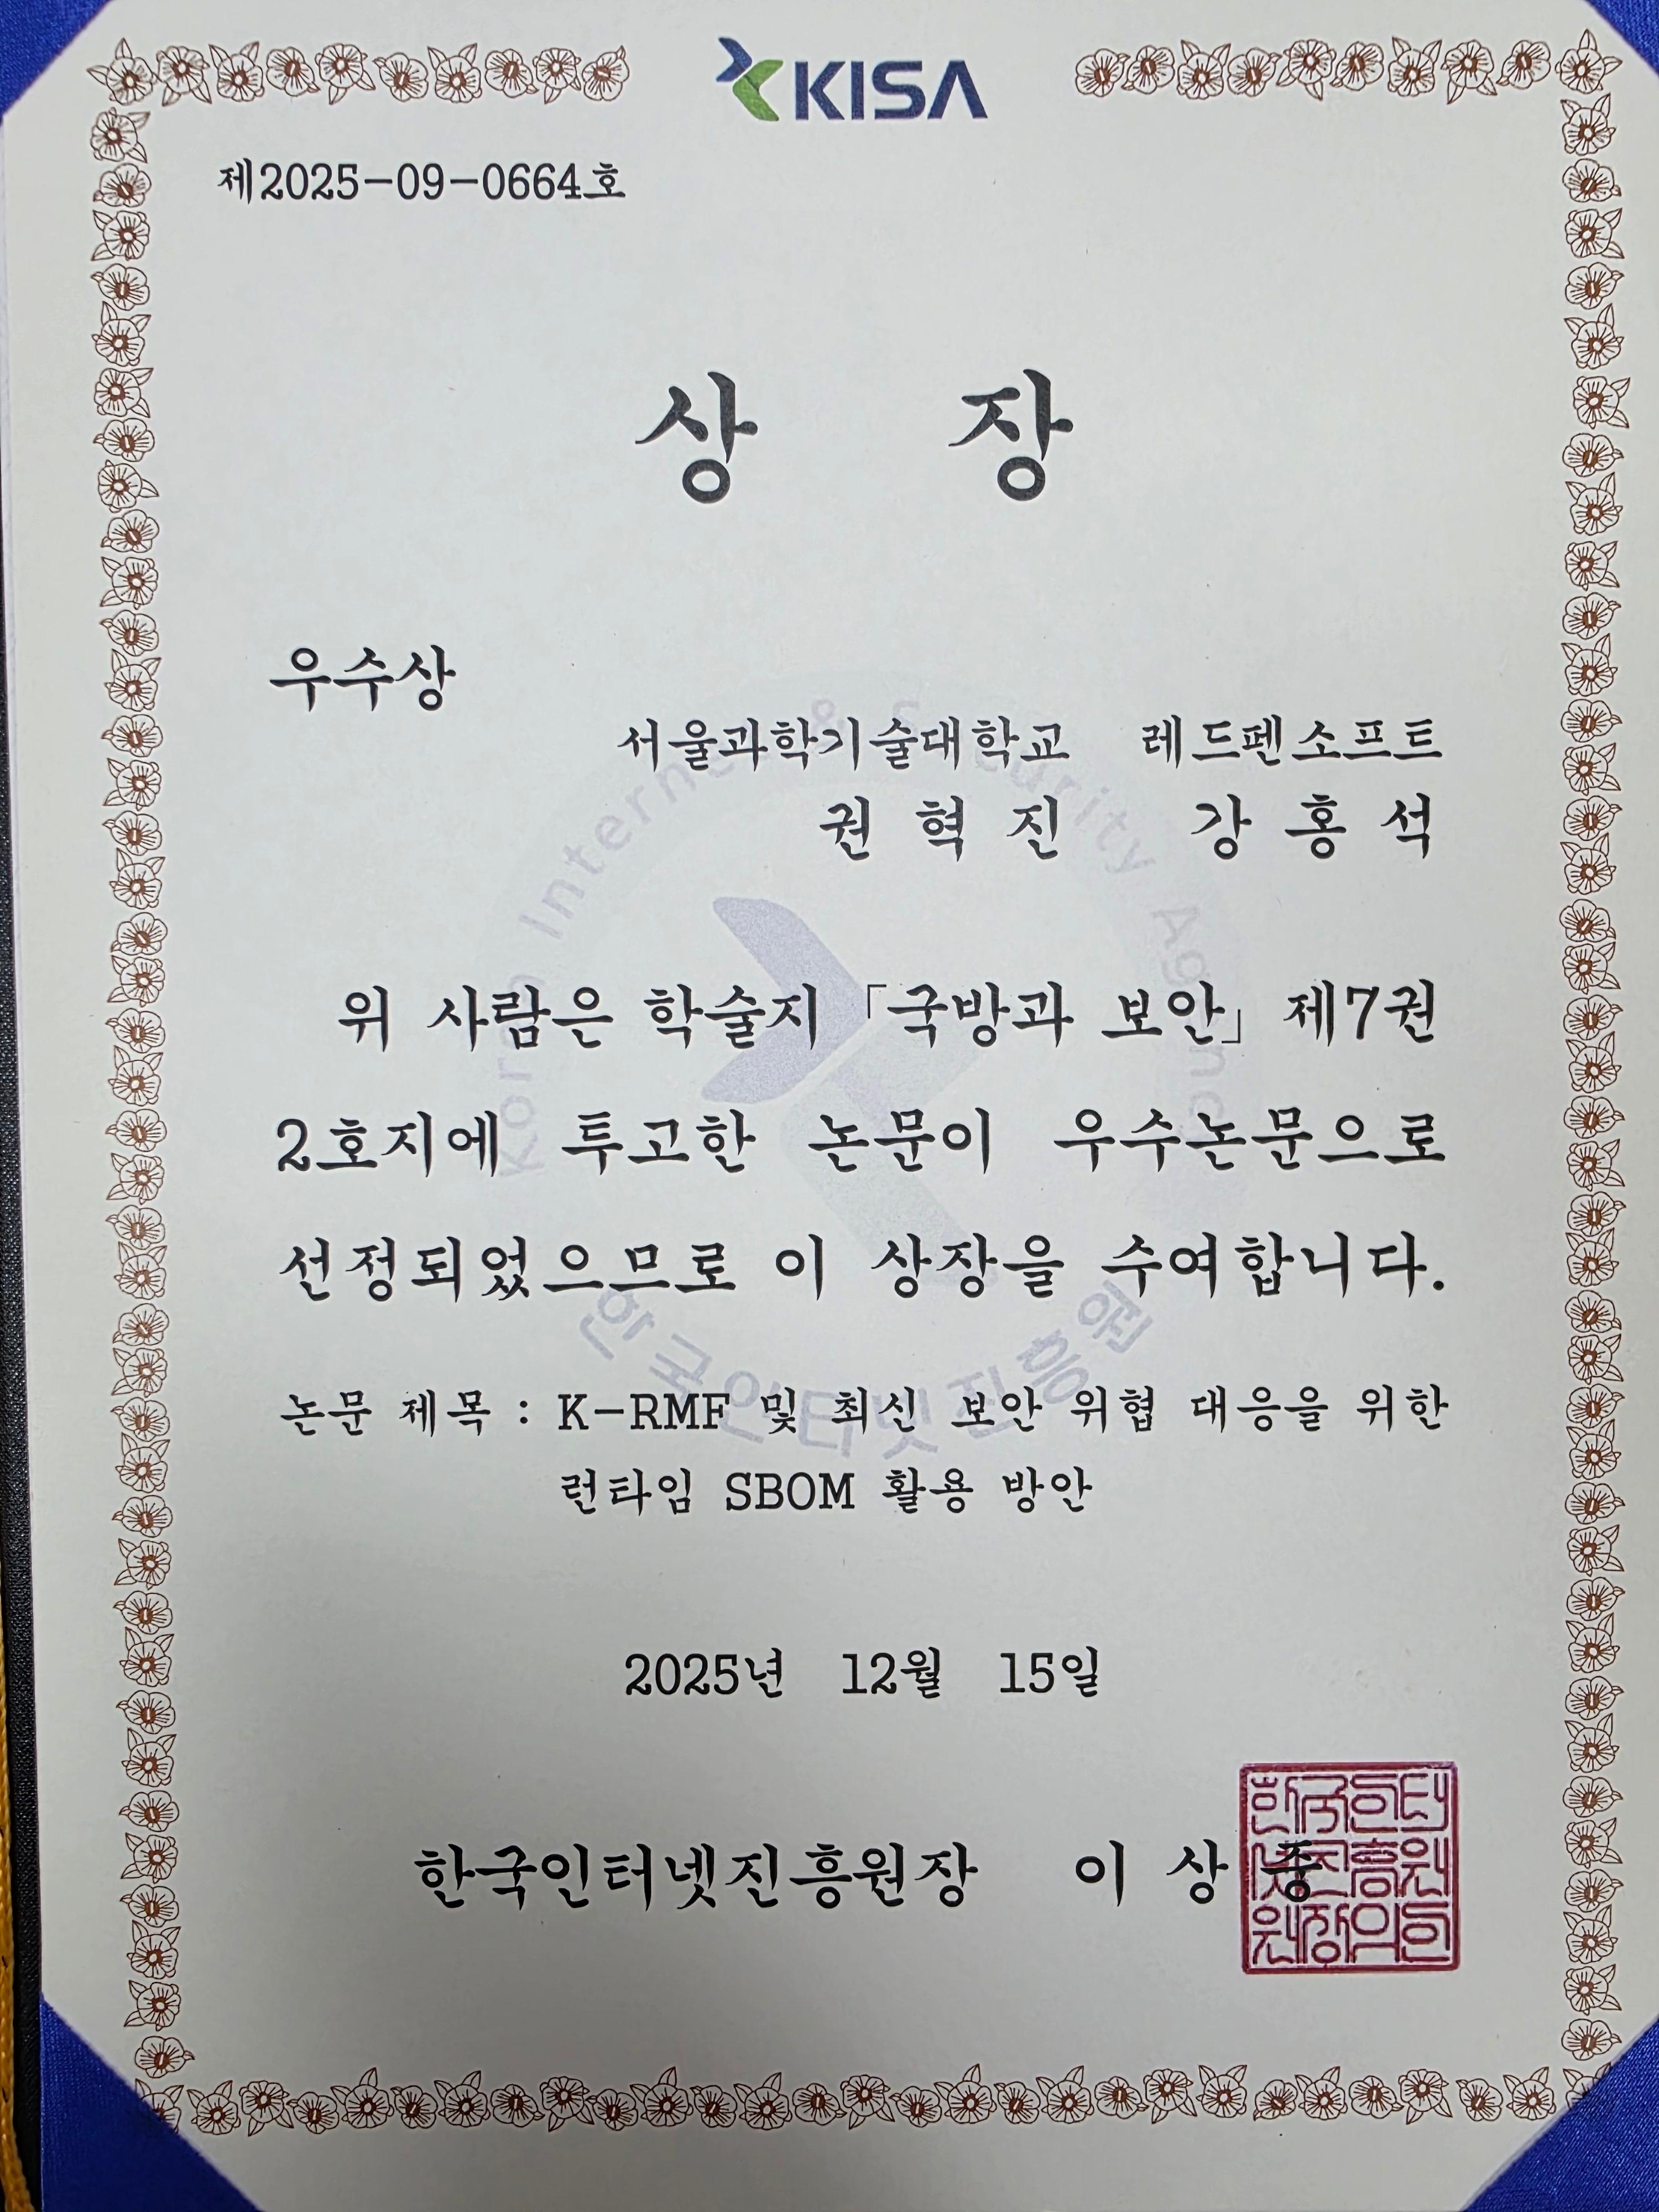 KISA
제2025-09-0664호
상 장
우수상
서울과학기술대학교 레드펜소프트
권 혁 진 강 홍 석
위 사람은 학술지 「국방과 보안」 제7권
2호지에 투고한 논문이 우수논문으로
선정되었으므로 이 상장을 수여합니다.
논문 제목 : K-RMF 및 최신 보안 위협 대응을 위한
런타임 SBOM 활용 방안
2025년 12월 15일
한국인터넷진흥원장 이 상 중
한국인터넷진흥원